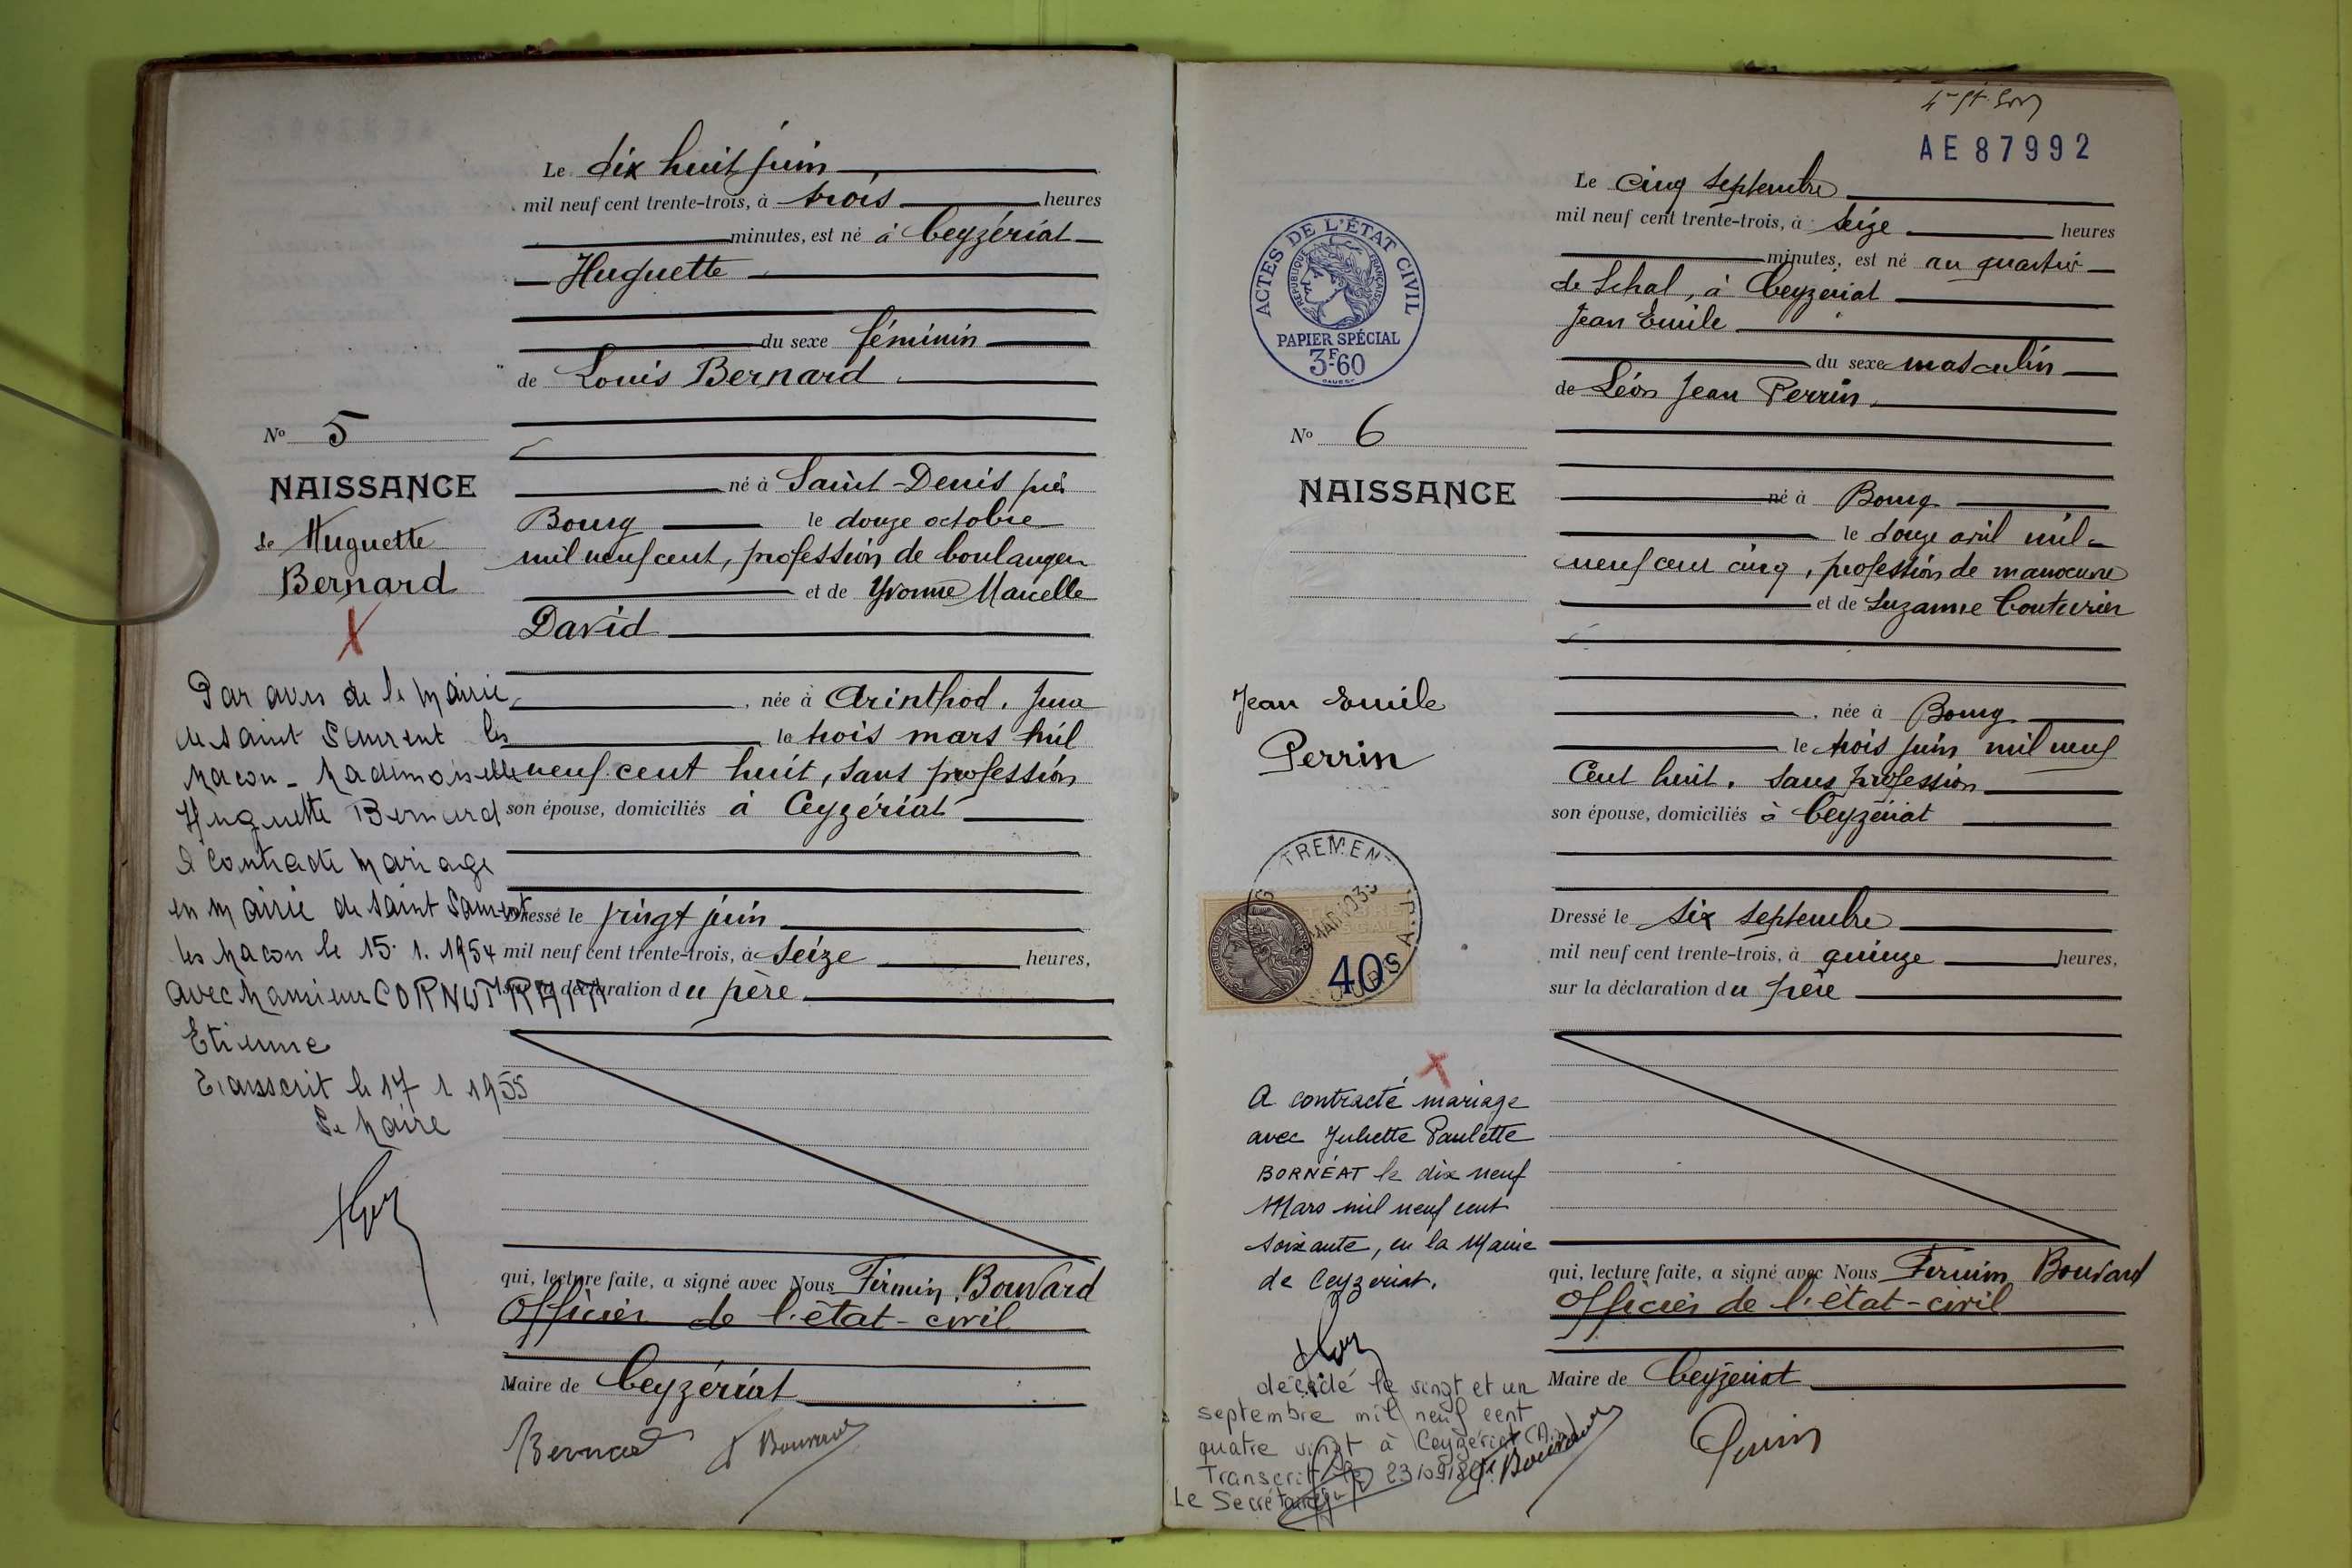 Le dix huit juin
mil neuf cent trente-trois, à trois heures
minutes, est né à Ceyzériat
Huguette
du sexe féminin
de Louis Bernard
né à Saint-Denis près
Bourg le douze octobre
mil neuf cent, profession de boulanger
et de Yvonne Marcelle
David
née à Arinthod. Jura
le trois mars mil
neuf cent huit, sans profession
son épouse, domiciliés à Ceyzériat
Dressé le vingt juin
mil neuf cent trente-trois, à seize heures,
sur la déclaration du père
qui, lecture faite, a signé avec Nous Firmin Bouvard
Officier de l'état-civil
Maire de Ceyzériat
Bernard F Bouvard
No 5
NAISSANCE
de Huguette
Bernard
X
Par avis de la Mairie
de saint Laurent les
Macon - Mademoiselle
Huguette Bernard
a contracté mariage
en mairie de saint Laurent
les Macon le 15. 1. 1954
avec Monsieur CORNUT
Etienne
Transcrit le 17 1 1955
Le Maire
AE 87992
Le cinq septembre
mil neuf cent trente-trois, à seize heures
minutes, est né au quartier
de , à Ceyzériat
Jean Emile
du sexe masculin
de Léon Jean Perrin
né à Bourg
le douze avril mil
neuf cent cinq, profession de manoeuvre
et de Suzanne Couturier
née à Bourg
le trois juin mil neuf
Cent huit. Sans profession
son épouse, domiciliés à Ceyzériat
Dressé le six septembre
mil neuf cent trente-trois, à quinze heures,
sur la déclaration du père
qui, lecture faite, a signé avec Nous Firmin Bouvard
Officier de l'état-civil
Maire de Ceyzériat
F. Bouvard Perrin
ACTES DE L'ÉTAT CIVIL
RÉPUBLIQUE FRANÇAISE
PAPIER SPÉCIAL
3F.60
No 6
NAISSANCE
Jean Emile
Perrin
TREMEN
40s
X
A contracté mariage
avec Juliette Paulette
BORNÉAT le dix neuf
Mars mil neuf cent
soixante, en la Mairie
de Ceyzeriat.
décédé le vingt et un
septembre mil neuf cent
quatre vingt à Ceyzériat (Ain)
Transcrit le 23/09/80
Le Secrétaire